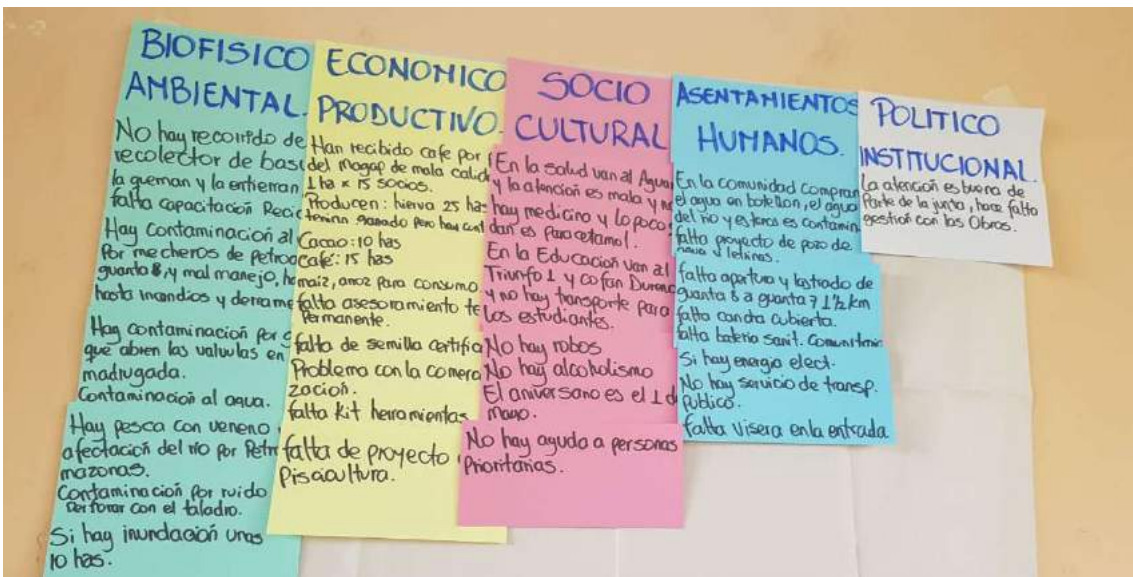 BIOFISICO
AMBIENTAL.
No hay recorrido de
recolector de bas
la queman y la entierran
falta capacitación Recic
Hay Contaminación al
Por mecheros de Petroa
guanta 8, y mal manejo, ha
hasta incendios y derrame
Hay contaminación por g
que abren las valvulas en
madrugada.
Contaminacion al agua.
Hay pesca con veneno
afectación del río por Petr
mazonas.
Contaminación por ruido
Perforar con el taladro.
Si hay inundación unas
10 has.
ECONOMICO
PRODUCTIVO.
Han recibido cafe por
del Magap de mala calid
1 ha x 15 socios.
Producen: hierva 25 has
ganado Pero hay
Cacao: 10 has
café: 15 has
maiz, arroz para consumo.
falta asesoramiento te
Permanente.
falta de semilla certifi
Problema con la comerc
zación.
falta kit herramientas
falta de proyecto
Piscicultura.
SOCIO
CULTURAL
En la salud van al Agua
y la atención es mala y n
hay medicina y lo poco
dan es paracetamol.
En la Educación van al
Triunfo 1 y cofan Dureno
y no hay transporte para
los estudiantes.
No hay robos
No hay alcoholismo
El aniversario es el 1 d
mayo.
No hay ayuda a personas
Prioritarias.
ASENTAMIENTOS
HUMANOS.
En la comunidad compran
el agua en botellon, el agua
del rio y esteros es contamin
falta proyecto de pozo de
y letrinas.
falta apertura y lastrado de
guanta 8 a guanta 7 1 1/2 km
falta cancha cubierta.
falta bateria sanit. Comunitaria
Si hay energia elect.
No hay servicio de transp.
publico.
falta visera en la entrada
POLITICO
INSTITUCIONAL.
La atención es buena de
Parte de la junta, hace falta
gestión con las Obras.